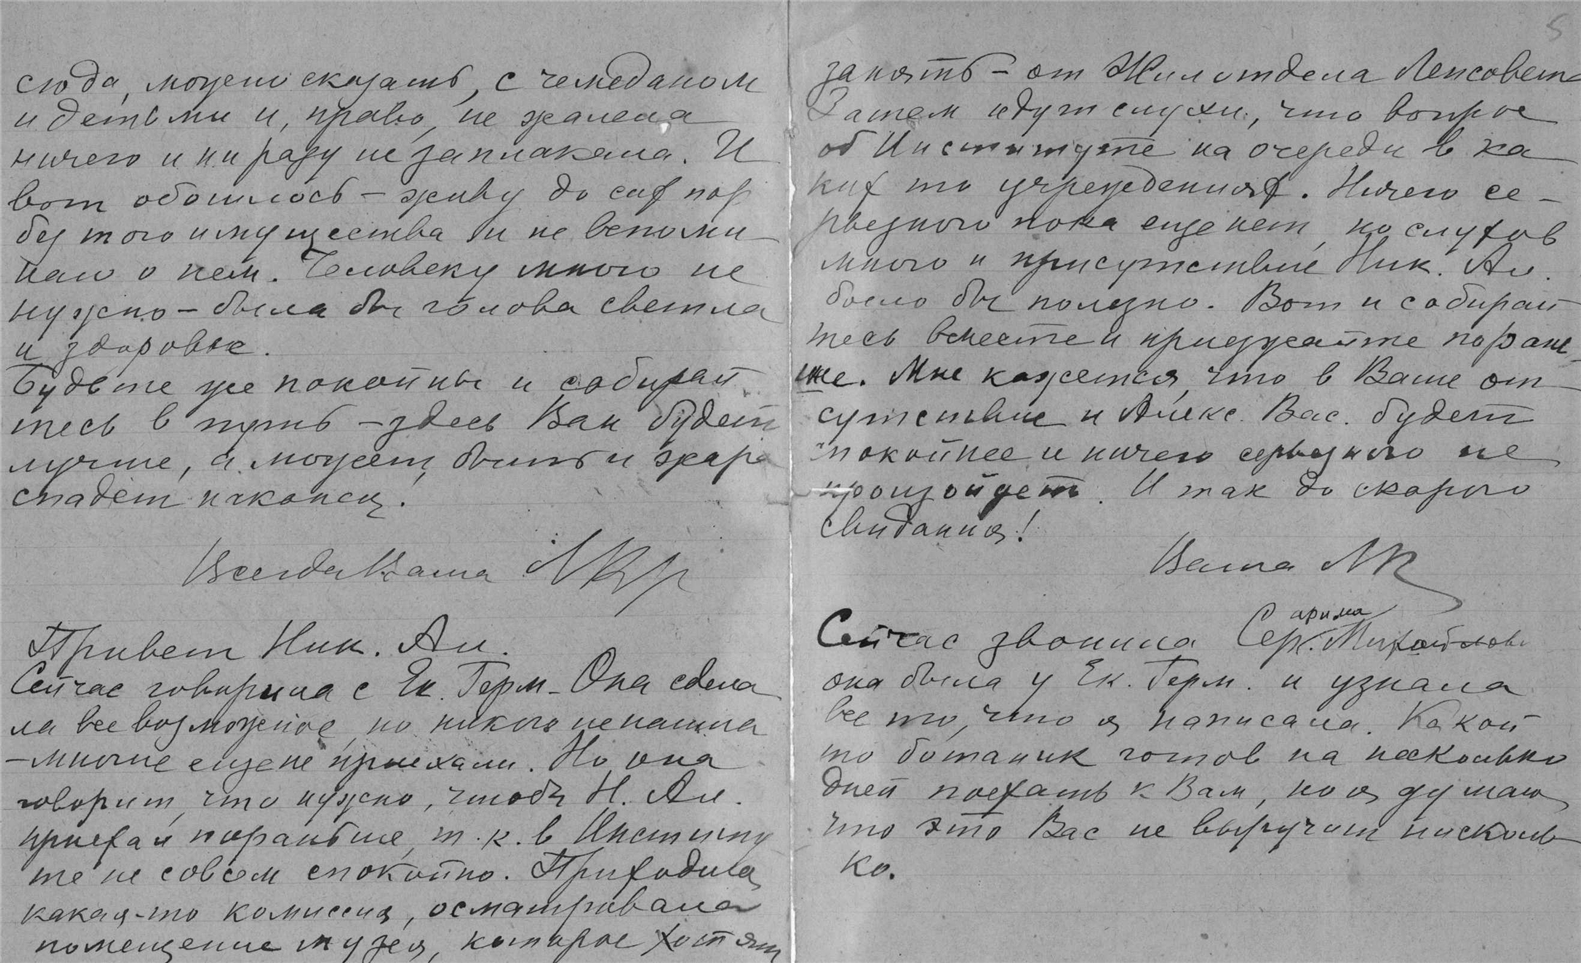 сюда, можно сказать, с чемоданом
и детьми и, право, не жалела
ничего и ни разу не заплакала. И
вот обошлось – живу до сих пор
без того имущества и не вспоми
наю о нем. Человеку много не
нужно – была бы голова светла
и здоровье.
Будьте же покойны и собирай
тесь в путь – здесь Вам будет
лучше, а может быть и жара
спадет наконец.
Всегда Ваша
Привет Ник. Ал.
Сейчас говорила с Ек. Герм. – Она сдела
ла все возможное, но никого не нашла
– многие еще не приехали. Но она
говорит, что нужно, чтобы Н. Ал.
приехал пораньше, т.к. в Институ
те не совсем спокойно. Приходила
какая-то комиссия, осматривала
помещение музея, которое хотят
5
занять – от Жилотдела Ленсовета
Затем идут слухи, что вопрос
об Институте на очереди в ка
ких то учреждениях. Ничего се–
рьезного пока еще нет, но слухов
много и присутствие Ник. Ал.
было бы полезно. Вот и собирай
тесь вместе и приезжайте порань
ше. Мне кажется, что в Ваше от
сутствие и Алекс. Вас. будет
спокойнее и ничего серьезного не
произойдет. И так до скорого
свидания!
Ваша
Сейчас звонила Сер. арима Михайлов
она была у Ек. Герм. и узнала
все то, что я написала. Какой
то ботаник готов на несколько
дней поехать к Вам, но я думаю,
что это Вас не выручит нисколь
ко.